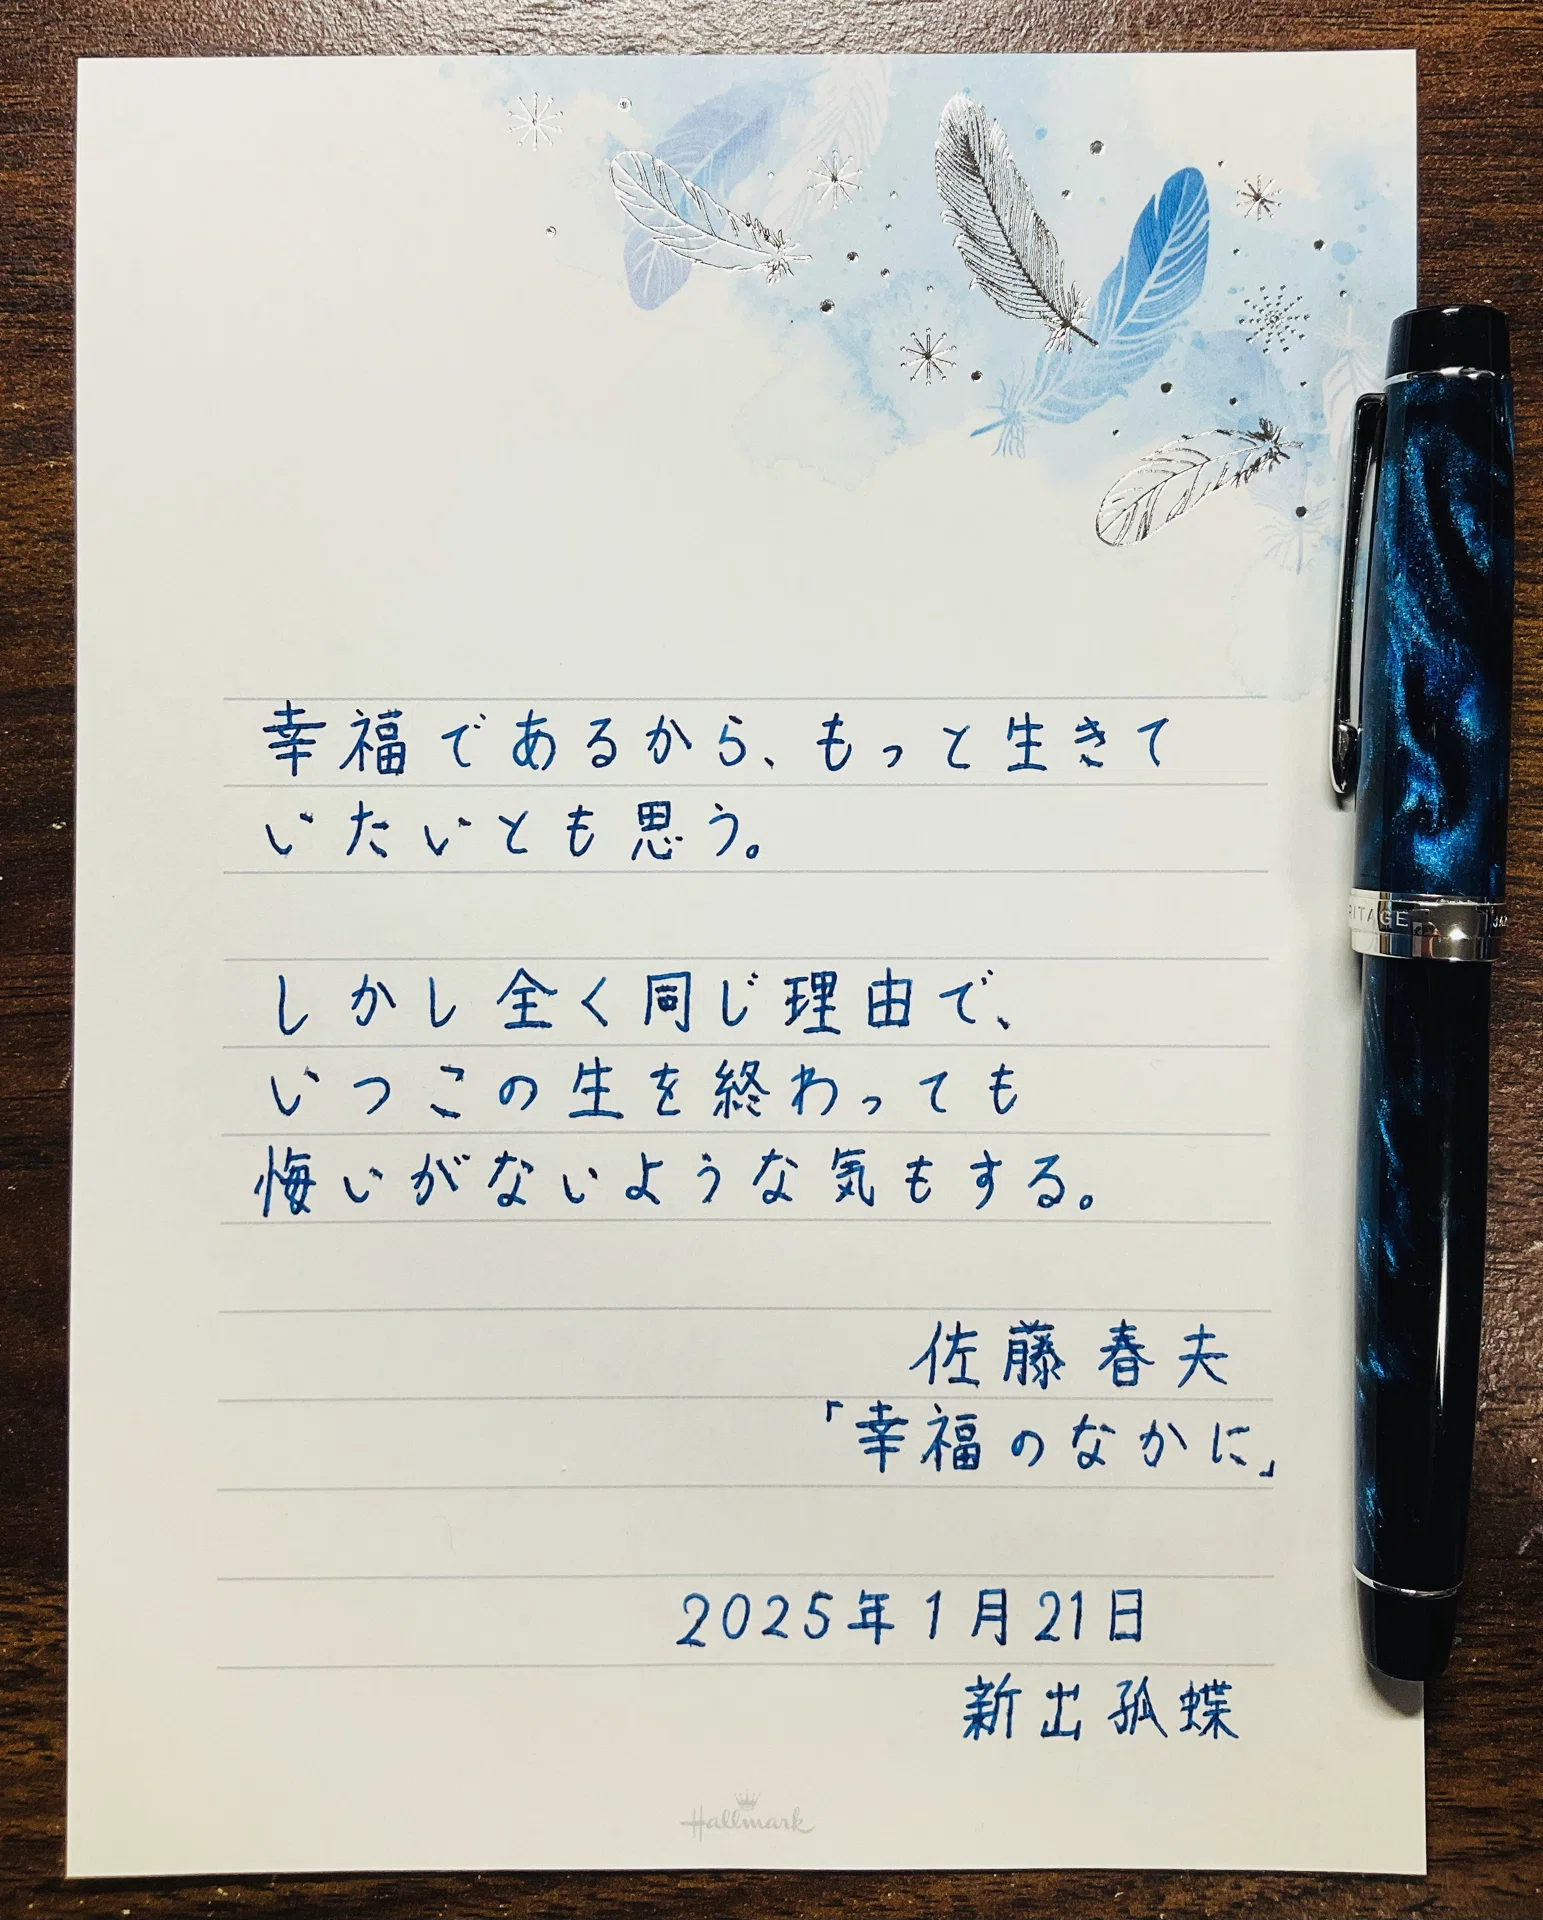 幸福であるから、もっと生きて
いたいとも思う。
しかし全く同じ理由で、
いつこの生を終わっても
悔いがないような気もする。
佐藤春夫
「幸福のなかに」
2025年1月21日
新出孤蝶
Hallmark
RITAGE